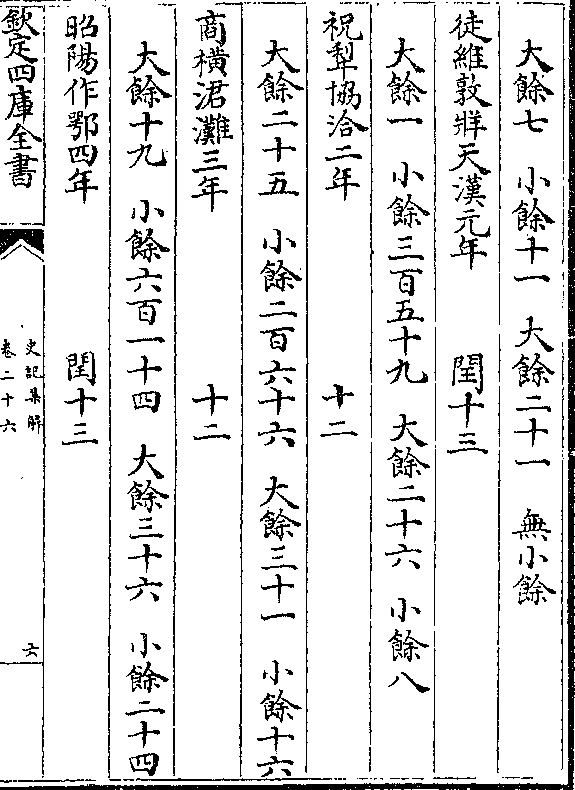 大餘七 小餘十一 大餘二十一 無小餘
徒維敦牂天漢元年 閏十三
大餘一 小餘三百五十九 大餘二十六 小餘八
祝犁協洽二年 十二
大餘二十五 小餘二百六十六 大餘三十一 小餘十六
商橫涒灘三年 十二
大餘十九 小餘六百一十四 大餘三十六 小餘二十四
昭陽作鄂四年 閏十三
欽定四庫全書
史記集解
卷二十六
六